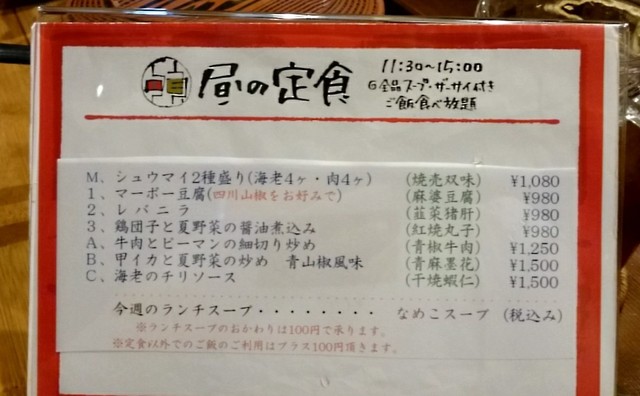 昼の定食
11:30~15:00
◎全品スープ・ザーサイ付き
ご飯食べ放題
M、シュウマイ2種盛り(海老4ヶ・肉4ヶ) (焼売双味) ¥1,080
1、マーボー豆腐(四川山椒をお好みで) (麻婆豆腐) ¥980
2、レバニラ (韮菜猪肝) ¥980
3、鶏団子と夏野菜の醤油煮込み (紅焼丸子) ¥980
A、牛肉とピーマンの細切り炒め (青椒牛肉) ¥1,250
B、甲イカと夏野菜の炒め 青山椒風味 (青麻墨花) ¥1,500
C、海老のチリソース (干焼蝦仁) ¥1,500
今週のランチスープ・・・・・・・・ なめこスープ (税込み)
※ランチスープのおかわりは100円で承ります。
※定食以外でのご飯のご利用はプラス100円頂きます。